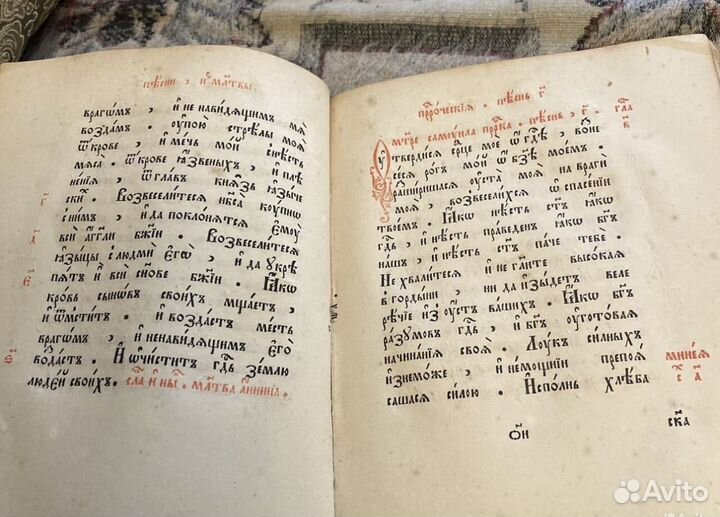 пѣсни , и҆ мл҃твы.
врагѡмъ , и҆ не навидѧщимъ мѧ
воздамъ . ѹ҆пою стрѣлы моѧ
ѿ крове , и҆ мечь мой снѣсть
мѧса . ѿ крове ꙗ҆звеныхъ , и҆ плѣ
ненїѧ , ѿ главъ кнѧзь ꙗ҆зыче
скихъ . Возвеселитесѧ нб҃са кѹпнѡ
с нимъ , и҆ да поклонѧтсѧ є҆мѹ
вси а҆гг҃ли бж҃їи . Возвеселитесѧ
ꙗ҆зыцы с людми є҆гѡ̀ , и҆ да ѹ҆крѣ
пѧтъ и҆ вси сн҃ове бж҃їи . Ꙗ҆кѡ
кровь сынѡвъ своихъ мщаетъ ,
и҆ ѿмститъ , и҆ воздастъ месть
врагѡмъ , и҆ ненавидѧщимъ є҆гѡ̀
воздастъ . И҆ ѡ҆чиститъ гд҇ь землю
людей своихъ . сла̑ и҆ нн҃ѣ . мл҃тва а҆ннина .
прⷪ҇рческїѧ . пѣснь г҃
мт҃ре самѹила прⷪ҇рка . пѣснь , г҃ . гла̑
в҃
Ѹ҆твердисѧ срⷣце мое ѡ҆ гд҇ѣ , возне
сесѧ рогъ мой ѡ҆ бз҃ѣ моемъ .
разширишасѧ ѹ҆ста моѧ на враги
моѧ , возвеселихсѧ ѡ҆ спасенїи
твоемъ . Ꙗ҆кѡ нѣсть ст҃ъ ꙗ҆кѡ
гд҇ь , и҆ нѣсть праведенъ ꙗ҆кѡ бг҃ъ
нашъ , и҆ нѣсть ст҃ъ паче тебе .
Не хвалитесѧ , и҆ не гл҃ите высокаѧ
в гордыни , ни да и҆зыдетъ веле
рѣчїе и҆з ѹ҆стъ вашихъ . Ꙗ҆кѡ бг҃ъ
разѹмовъ гд҇ь , и҆ бг҃ъ ѹ҆готоваѧ
начинанїѧ своѧ . Лѹкъ силныхъ
и҆знеможе , и҆ немощнїи препоѧ
сашасѧ силою . И҆сполнь хлѣба
минеѧ
ѻ҆н
ска
Avito